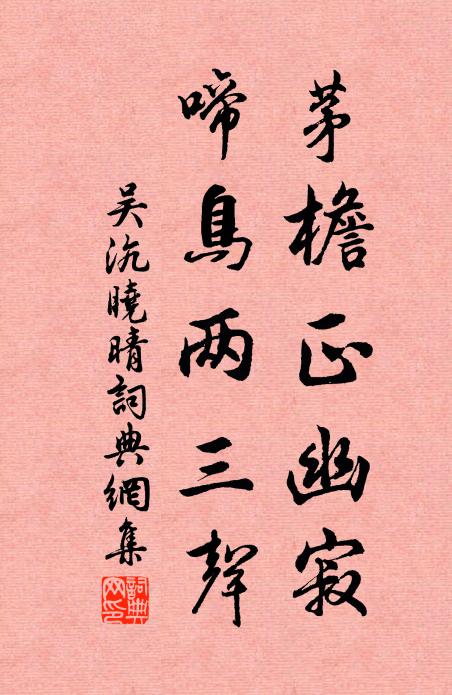 茅檐正幽寂
啼鳥两三聲
吴沆曉晴詞典網集
詞典
网印